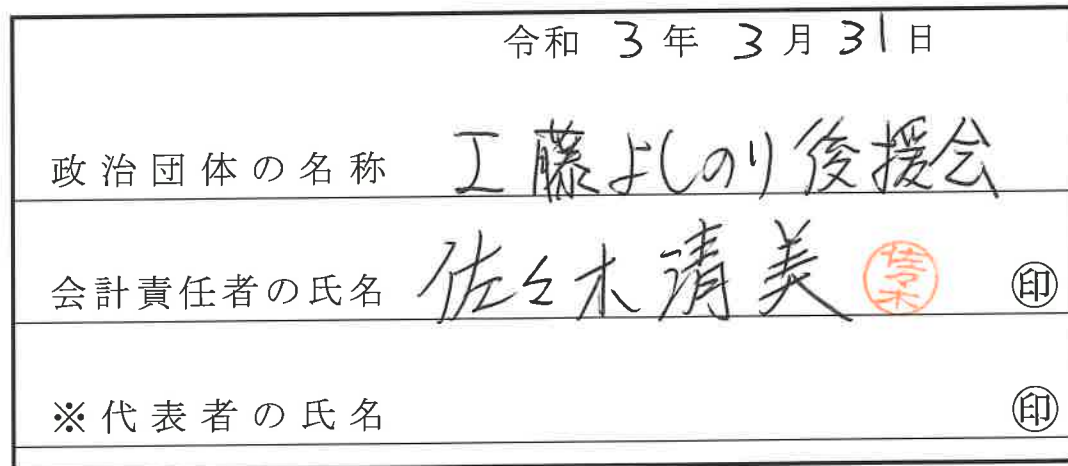 令和 3 年 3 月 31 日
政治団体の名称 工藤よしのり後援会
会計責任者の氏名 佐々木清美 佐々木 ㊞
※代表者の氏名 ㊞